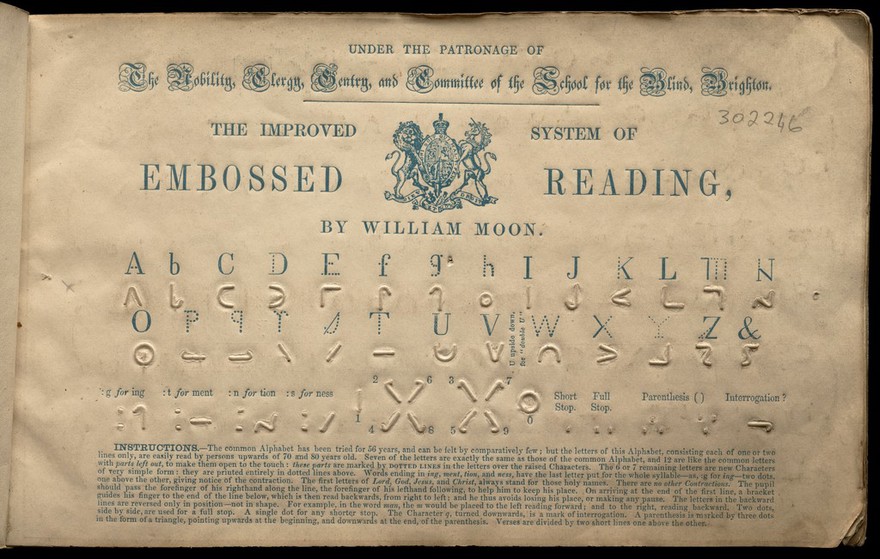 UNDER THE PATRONAGE OF
The Nobility, Clergy, Gentry, and Committee of the School for the Blind, Brighton.
302246
THE IMPROVED SYSTEM OF
EMBOSSED READING,
BY WILLIAM MOON.
A b C D E f g h I J K L M N
O P q r s T U V W X Y Z &
U upside down, for "double U"
:g for ing :t for ment :n for tion :s for ness
2 6 3 7
1 4 8 5 9 0
Short Stop. Full Stop. Parenthesis ( ) Interrogation ?
INSTRUCTIONS.—The common Alphabet has been tried for 56 years, and can be felt by comparatively few; but the letters of this Alphabet, consisting each of one or two
lines only, are easily read by persons upwards of 70 and 80 years old. Seven of the letters are exactly the same as those of the common Alphabet, and 12 are like the common letters
with parts left out, to make them open to the touch: these parts are marked by DOTTED LINES in the letters over the raised Characters. The 6 or 7 remaining letters are new Characters
of very simple form: they are printed entirely in dotted lines above. Words ending in ing, ment, tion, and ness, have the last letter put for the whole syllable—as, :g for ing—two dots,
one above the other, giving notice of the contraction. The first letters of Lord, God, Jesus, and Christ, always stand for those holy names. There are no other Contractions. The pupil
should pass the forefinger of his righthand along the line, the forefinger of his lefthand following, to help him to keep his place. On arriving at the end of the first line, a bracket
guides his finger to the end of the line below, which is then read backwards, from right to left; and he thus avoids losing his place, or making any pause. The letters in the backward
lines are reversed only in position—not in shape. For example, in the word man, the m would be placed to the left reading forward; and to the right, reading backward. Two dots,
side by side, are used for a full stop. A single dot for any shorter stop. The Character q, turned downwards, is a mark of interrogation. A parenthesis is marked by three dots
in the form of a triangle, pointing upwards at the beginning, and downwards at the end, of the parenthesis. Verses are divided by two short lines one above the other.